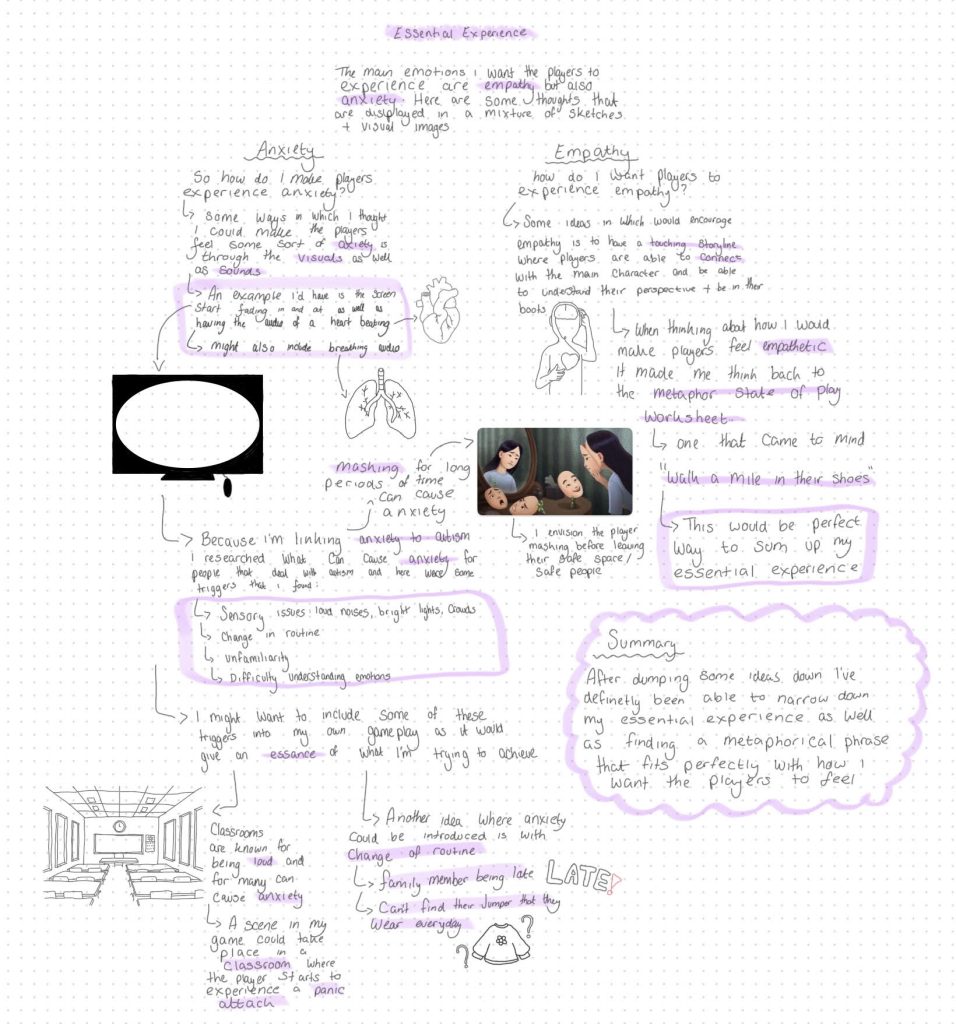 Essential Experience
The main emotions i want the players to
experience are empathy but also
anxiety. Here are some thoughts that
are displayed in a mixture of sketches
+ visual images
Anxiety
So how do I make players
experience anxiety?
Some ways in which I thought
I could make the players
feel some sort of axiety is
through the visuals as well
as sounds
An example i'd have is the screen
start fading in and out as well as
having the audio of a heart beating
might also include breathing audio
Empathy
how do I want players to
experience empathy?
Some ideas in which would encourage
empathy is to have a touching storyline
where players are able to connect
with the main character and be able
to understand their perspective + be in their
books
When thinking about how I would
make players feel empathetic
it made me think back to
the metaphor State of Play
Worksheet.
one that came to mind
"Walk a mile in their shoes"
This would be perfect
way to sum up my
essential experience
mashing for long
periods of time
can cause
anxiety
I envision the player
mashing before leaving
their safe space/
safe people
Because i'm linking anxiety to autism
I researched what can cause anxiety for
people that deal with autism and here were some
triggers that i found:
Sensory issues: loud noises, bright lights, crowds
Change in routine
unfamiliarity
Difficulty understanding emotions
I might want to include some of these
triggers into my own gameplay as it would
give an essance of what I'm trying to achieve
Classrooms
are known for
being loud and
for many can
cause anxiety
A scene in my
game could take
place in a
classroom where
the player starts to
experience a panic
attack
Another idea where anxiety
could be introduced is with
Change of routine
family member being late
LATE!
Can't find their Jumper that they
wear everyday
?
?
Summary
After dumping some ideas down I've
definetly been able to narrow down
my essential experience as well
as finding a metaphorical phrase
that fits perfectly with how I
want the players to feel